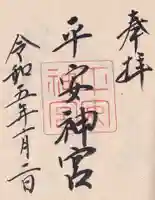 奉拝
平安神宮
令和五年一月二日